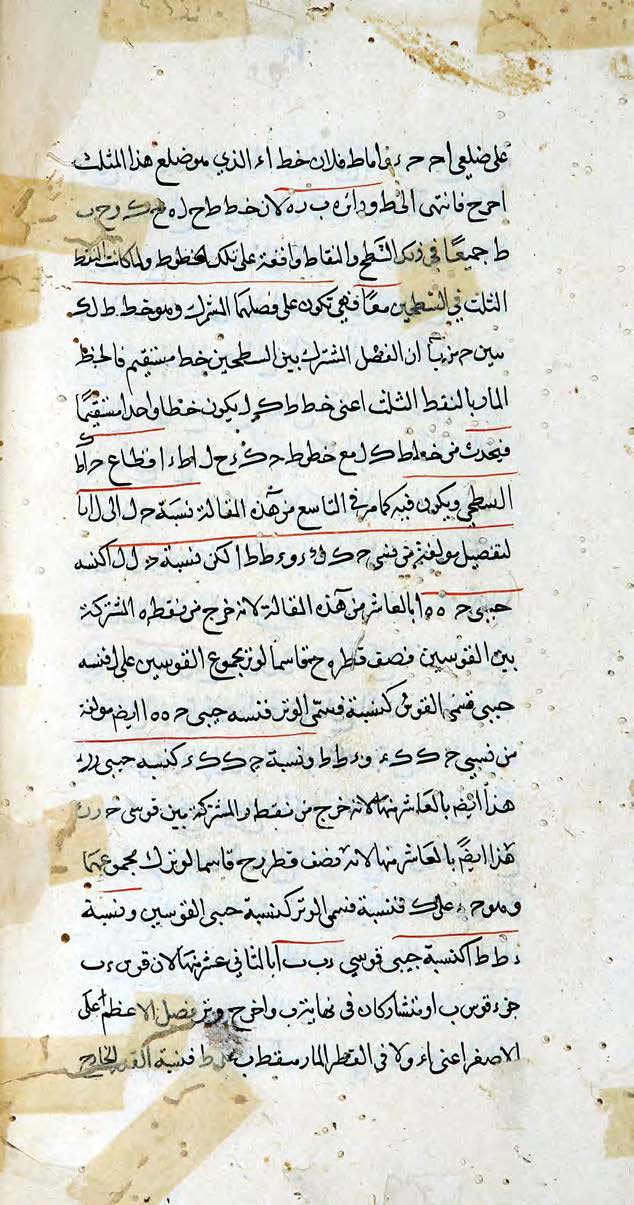 على ضلعى ا ح ح ء و اما ط فلان خط ا ء الذي هو ضلع هذا المثلث
اخرج فانتهى الخط و دائرة ب ر ه لان خط ط ح ل ه ح ك ر ح ب
ط جميعا فى ذنك السطح والنقاط واقعة على تلك الخطوط ولما كانت النقط
الثلث في السطحين معا فهى تكون على فصلهما المشترك وهو خط ط ل ك
ان الفصل المشترك بين السطحين خط مستقيم فالخط
المار بالنقط الثلث اعنى خط ط ك ل يكون خطا واحدا مستقيما
فيحدث من خط ط ك ل مع خطوط ح ك ء ح ل ا ط ء ا قطاع
السطحى ويكون فيه كما مر فى التاسع من هذه المقالة نسبة ح ل الى ل ا با
لتفصيل مولفة من نسبتى ح ك ك ء و ء ط ط ا لكن نسبة ح ل ل ا كنسبة
جيبى ح ه ه ا بالعاشر من هذه المقالة لانه خرج من نقطة ه المشتركة
بين القوسين نصف قطر ه ح قاسما لوتر مجموع القوسين على ل فنسبة
جيبى قسمى القوس كنسبة قسمى الوتر فنسبة جيبى ح ه ه ا ايضا مولفة
من نسبتى ح ك ك ء و ء ط ط ا ونسبة ح ك ك ء كنسبة جيبى ح ر ر ء
هذا ايضا بالعاشر منها لانه خرج من نقطة ر المشتركة بين قوسى ح ر ر ء
هذا ايضا بالعاشر منها لانه نصف قطر ر ح قاسما لوتر ك مجموعهما
وهو ح ء على ك فنسبة قسمى الوتر كنسبة جيبى القوسين ونسبة
ء ط ط ا كنسبة جيبى قوسى ء ب ب ا بالثانى عشر منها لان قوس ء ب
جزء قوس ب ا و تتشاركان فى نهاية ب واخرج وتر فصل الاعظم على
الاصغر اعنى ا ء ولا فى القطر المار بنقطة ب على ط فنسبة الخارج